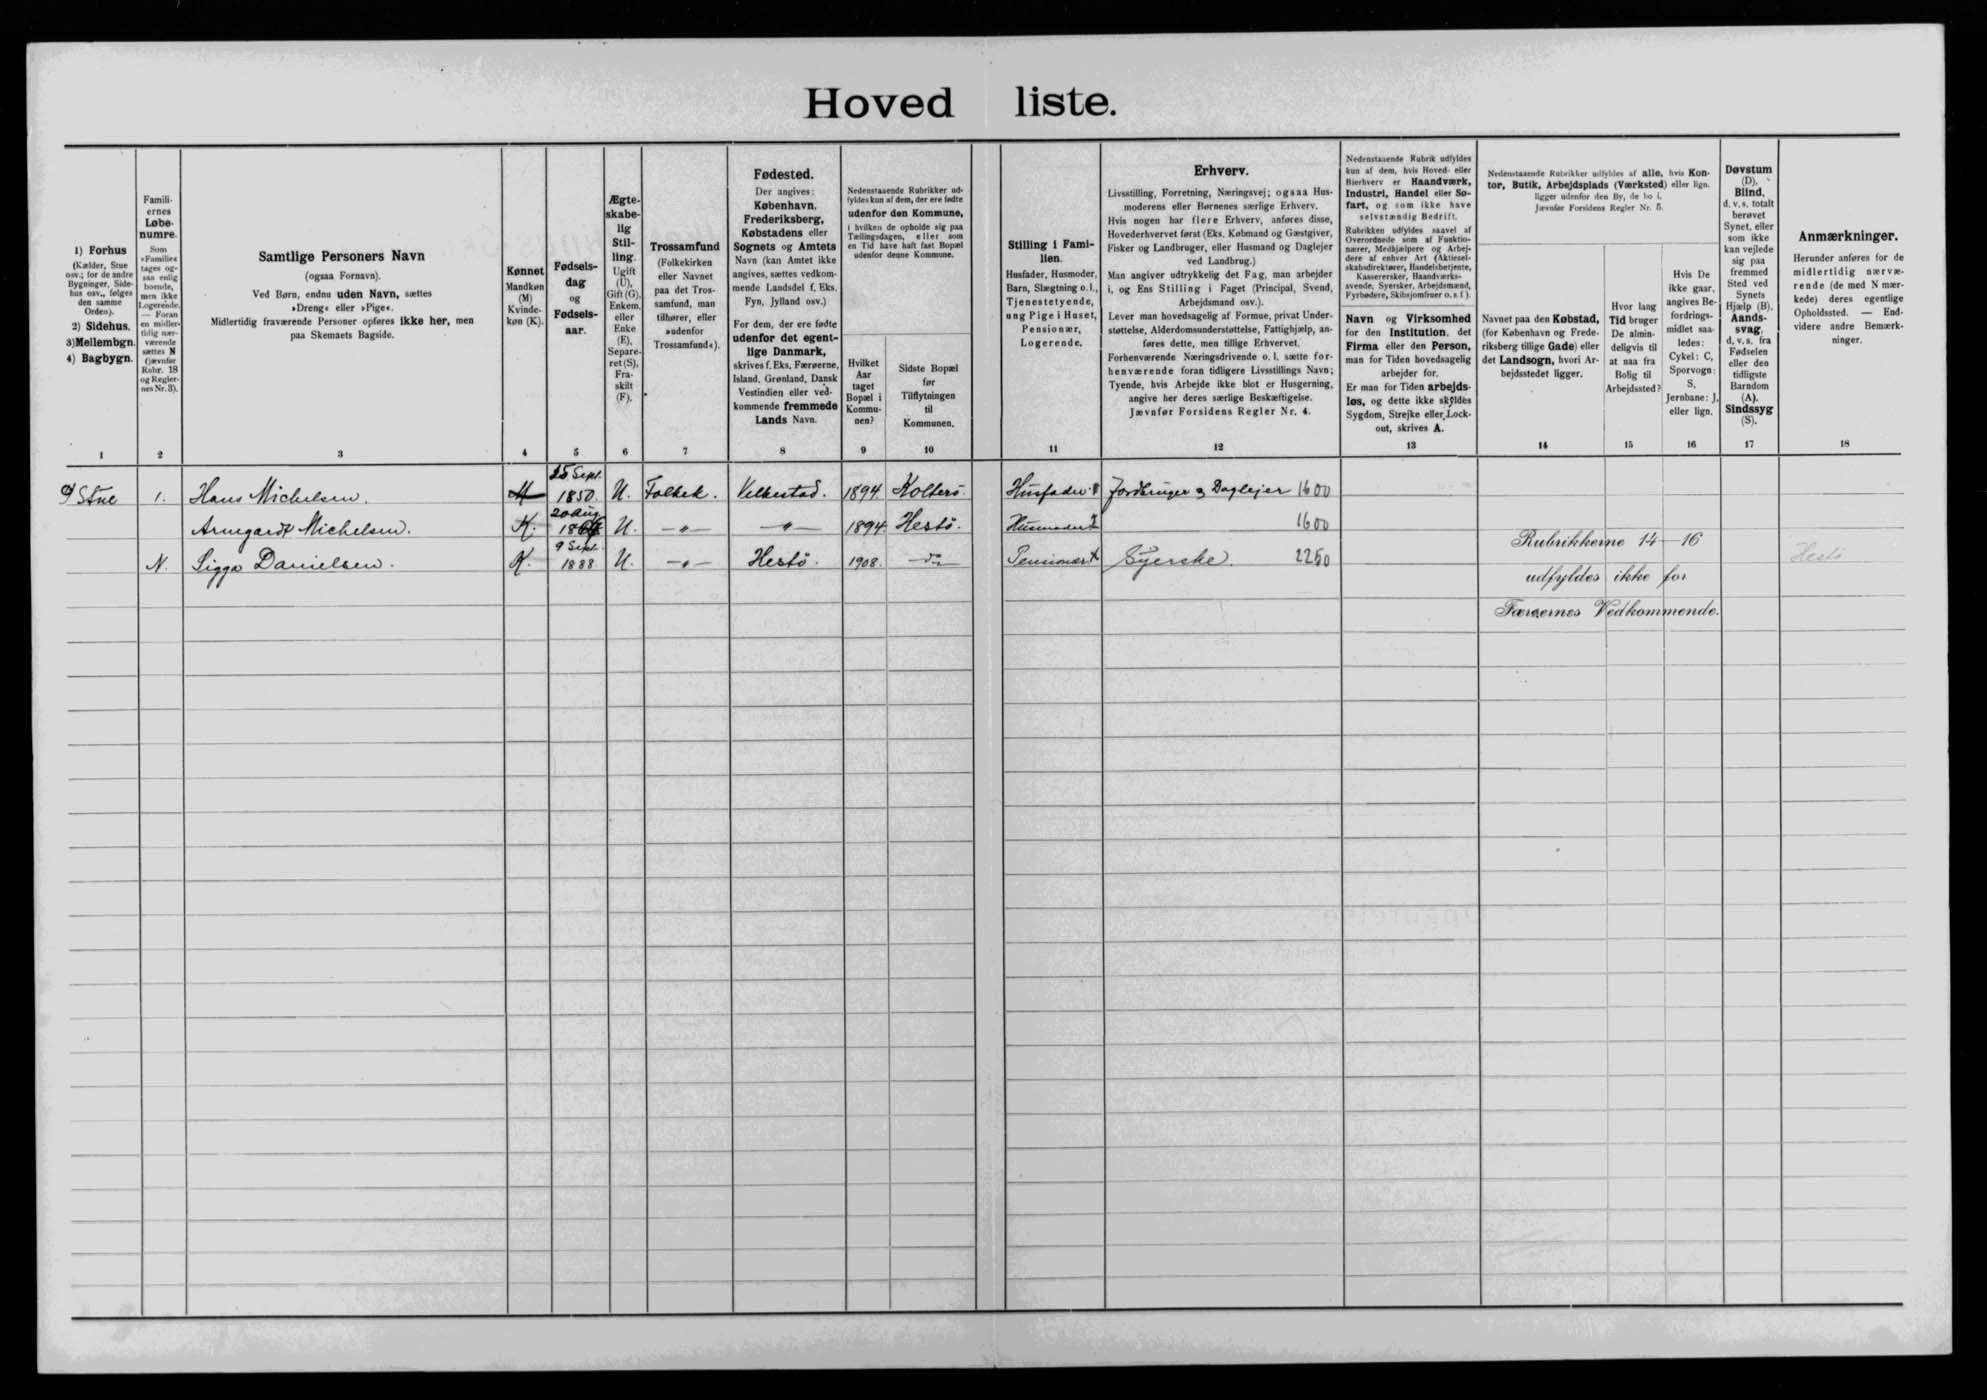 Hoved liste.
1) Forhus
(Kælder, Stue
osv.; for de andre
Bygninger, Side-
hus osv., følges
den samme
Orden).
2) Sidehus.
3) Mellembgn.
4) Bagbygn.
1
Famili-
ernes
Løbe-
numre.
Som
»Familie«
tages og-
saa enlig
boende,
men ikke
Logerende.
— Foran
en midler-
tidig nær-
værende
sættes N
(jævnfør
Rubr. 18
og Regler-
nes Nr. 3).
2
Samtlige Personers Navn
(ogsaa Fornavn).
Ved Børn, endnu uden Navn, sættes
»Dreng« eller »Pige«.
Midlertidig fraværende Personer opføres ikke her, men
paa Skemaets Bagside.
3
Kønnet
Mandkøn
(M)
Kvinde-
køn (K).
4
Fødsels-
dag
og
Fødsels-
aar.
5
Ægte-
skabe-
lig
Stil-
ling.
Ugift
(U),
Gift (G),
Enkem.
eller
Enke
(E),
Separe-
ret (S),
Fra-
skilt
(F).
6
Trossamfund
(Folkekirken
eller Navnet
paa det Tros-
samfund, man
tilhører, eller
»udenfor
Trossamfund«).
7
Fødested.
Der angives:
København,
Frederiksberg,
Købstadens eller
Sognets og Amtets
Navn (kan Amtet ikke
angives, sættes vedkom-
mende Landsdel f. Eks.
Fyn, Jylland osv.)
For dem, der ere fødte
udenfor det egent-
lige Danmark,
skrives f. Eks. Færøerne,
Island, Grønland, Dansk
Vestindien eller ved-
kommende fremmede
Lands Navn.
8
Nedenstaaende Rubrikker ud-
fyldes kun af dem, der ere fødte
udenfor den Kommune,
i hvilken de opholde sig paa
Tællingsdagen, eller som
en Tid have haft fast Bopæl
udenfor denne Kommune.
Hvilket
Aar
taget
Bopæl i
Kommu-
nen?
9
Sidste Bopæl
før
Tilflytningen
til
Kommunen.
10
Stilling i Fami-
lien.
Husfader, Husmoder,
Barn, Slægtning o. l.,
Tjenestetyende,
ung Pige i Huset,
Pensionær,
Logerende.
11
Erhverv.
Livsstilling, Forretning, Næringsvej; ogsaa Hus-
moderens eller Børnenes særlige Erhverv.
Hvis nogen har flere Erhverv, anføres disse,
Hovederhvervet først (Eks. Købmand og Gæstgiver,
Fisker og Landbruger, eller Husmand og Daglejer
ved Landbrug.)
Man angiver udtrykkelig det Fag, man arbejder
i, og Ens Stilling i Faget (Principal, Svend,
Arbejdsmand osv.).
Lever man hovedsagelig af Formue, privat Under-
støttelse, Alderdomsunderstøttelse, Fattighjælp, an-
føres dette, men tillige Erhvervet.
Forhenværende Næringsdrivende o. l. sætte for-
henværende foran tidligere Livsstillings Navn;
Tyende, hvis Arbejde ikke blot er Husgerning,
angive her deres særlige Beskæftigelse.
Jævnfør Forsidens Regler Nr. 4.
12
Nedenstaaende Rubrik udfyldes
kun af dem, hvis Hoved- eller
Bierhverv er Haandværk,
Industri, Handel eller Sø-
fart, og som ikke have
selvstændig Bedrift.
Rubrikken udfyldes saavel af
Overordnede som af Funktio-
nærer, Medhjælpere og Arbej-
dere af enhver Art (Aktiesel-
skabsdirektører, Handelsbetjente,
Kassererersker, Haandværks-
svende, Syersker, Arbejdsmænd,
Fyrbødere, Skibsjomfruer o. s. f.).
Navn og Virksomhed
for den Institution, det
Firma eller den Person,
man for Tiden hovedsagelig
arbejder for.
Er man for Tiden arbejds-
løs, og dette ikke skyldes
Sygdom, Strejke eller Lock-
out, skrives A.
13
Nedenstaaende Rubrikker udfyldes af alle, hvis Kon-
tor, Butik, Arbejdsplads (Værksted) eller lign.
ligger udenfor den By, de bo i.
Jævnfør Forsidens Regler Nr. 5.
Navnet paa den Købstad,
(for København og Frede-
riksberg tillige Gade) eller
det Landsogn, hvori Ar-
bejdsstedet ligger.
14
Hvor lang
Tid bruger
De almin-
deligvis til
at naa fra
Bolig til
Arbejdssted?
15
Hvis De
ikke gaar,
angives Be-
fordrings-
midlet saa-
ledes:
Cykel: C,
Sporvogn:
S,
Jernbane: J,
eller lign.
16
Døvstum
(D),
Blind,
d. v. s. totalt
berøvet
Synet, eller
som ikke
kan vejlede
sig paa
fremmed
Sted ved
Synets
Hjælp (B).
Aands-
svag,
d. v. s. fra
Fødselen
eller den
tidligste
Barndom
(A).
Sindssyg
(S).
17
Anmærkninger.
Herunder anføres for de
midlertidig nærvæ-
rende (de med N mær-
kede) deres egentlige
Opholdssted. — End-
videre andre Bemærk-
ninger.
18
Stue 1. Hans Michelsen. M 25 Sept. 1850. U. Folkek. Velbestad. 1894 Kolterö. Husfader Jordbruger og Daglejer 1600
Armgardt Michelsen. K. 20 Aug. U. —"— —"— 1894. Hestö. Husmoder 1600
N. Sigga Danielsen. K. 9 Sept. 1888. U. —"— Hestö. 1908. —do— Pensionær Syerske. 2250 Hestö
Rubrikkerne 14—16
udfyldes ikke for
Færøernes Vedkommende.